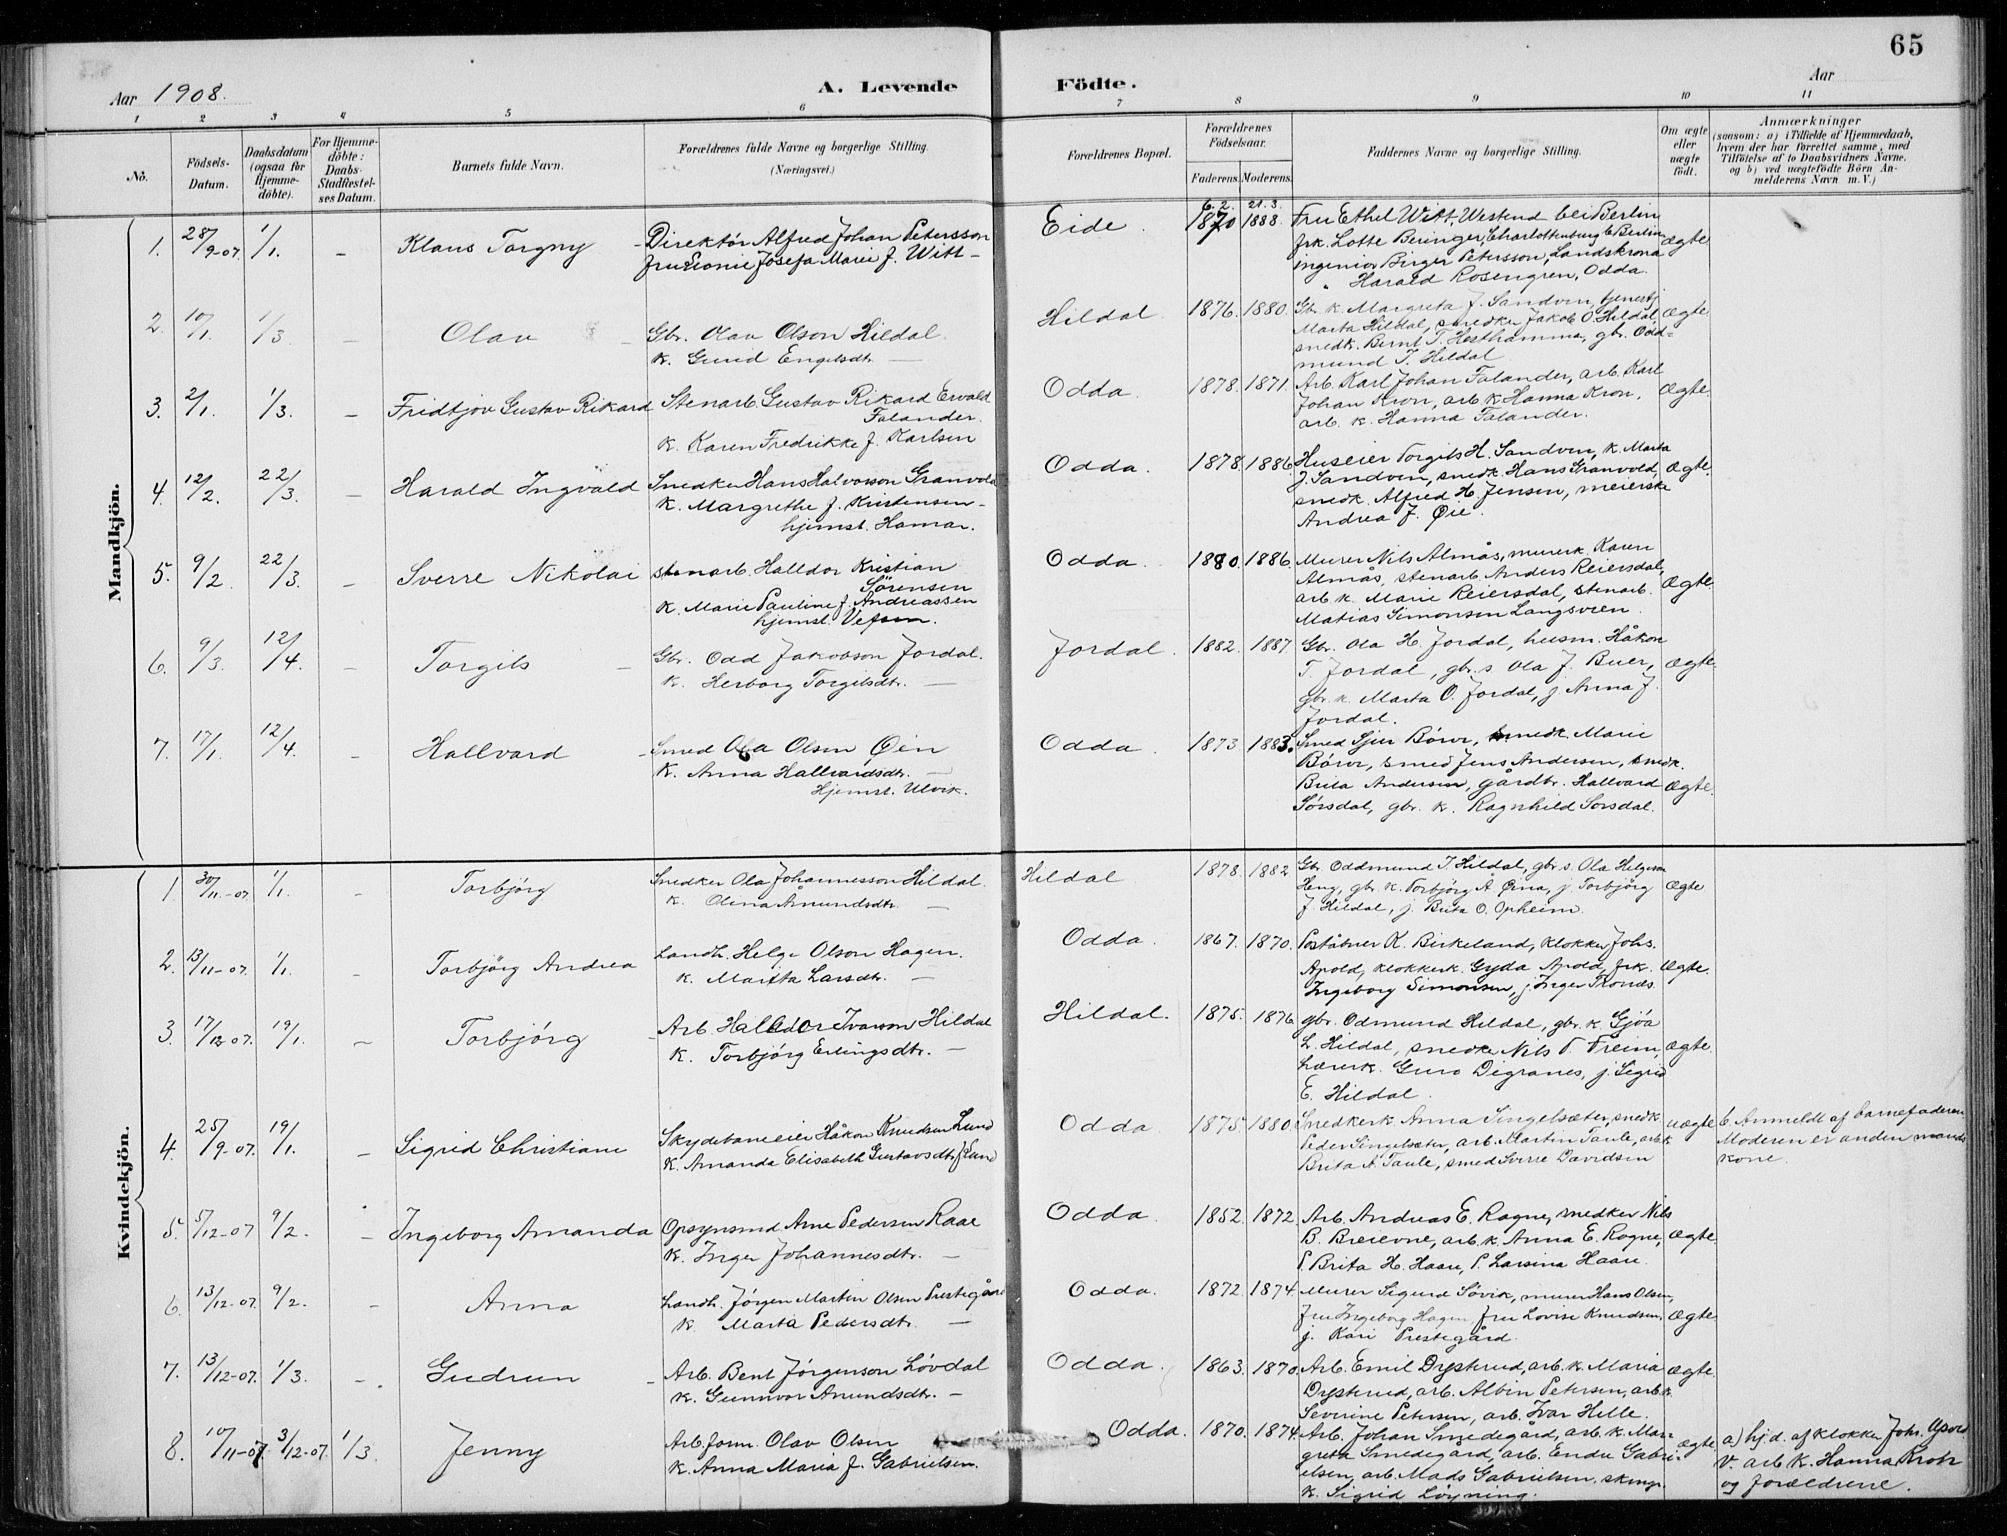 65
Aar 1908.
A. Levende Födte.
Aar
1 2 3 4 5 6 7 8 9 10 11
No.
Födsels-Datum.
Daabsdatum (ogsaa for Hjemme-döbte).
For Hjemme-döbte: Daabs-Stadfæstel-ses Datum.
Barnets fulde Navn.
Forældrenes fulde Navne og borgerlige Stilling.
(Næringsvei.)
Forældrenes Bopæl.
Forældrenes Födselsaar.
Faderens. Moderens.
Faddernes Navne og borgerlige Stilling.
Om ægte eller uægte födt.
Anmærkninger
(saasom: a) i Tilfælde af Hjemmedaab, hvem der har forrettet samme, med Tilföielse af to Daabsvidners Navne, og b) ved uægtefödte Börn An-melderens Navn m. V.)
Mandkjön.
1. 28/9-07. 1/1. - Klaus Torgny - Direktør Alfred Johan Petersson
Fru Leonie Josefa Marie f. Witt -
Eide. 6.2. 1870 21.3. 1888. Fru Ethel Witt, Westend bei Berlin
frk. Lotte Beringer, Charlottenburg b Berlin
ingeniør Birger Petersson, Landskrona
" Harald Rosengren, Odda.
Ægte
2. 10/1. 1/3. - Olav - Gbr. Olav Olson Hildal.
K. Guud Engelsdtr. -
Hildal. 1876. 1880. Gbr. k. Margreta J. Sandven, tjenestj.
Marta Hildal, snedker Jakob O. Hildal,
snedk. Bernt T. Hesthammer, gbr. Odd=
mund T. Hildal
Ægte
3. 2/1. 1/3. - Fridtjov Gustav Rikard Stenarb. Gustav Rikard Ervald
Falander.
K. Karen Fredrikke f. Karlsen
Odda. 1878. 1871. Arb. Karl Johan Falander, arb. Karl
Johan Kron, arb. k. Hanna Kron,
arb. k. Hanna Falander.
Ægte.
4. 12/2. 22/3. - Harald Ingvald Snedker Hans Halvorsson Granvold
K. Margrethe f. Kristensen -
hjemst. Hamar.
Odda. 1878. 1886. Huseier Torgils H. Sandven, k. Marta
J. Sandven, snedk. Hans Granvold,
snedk. Alfred H. Jensen, meierske
Andrea J. Øie.
Ægte.
5. 9/2. 22/3. - Sverre Nikolai stenarb. Halldor Kristian
Sörensen
K. Marie Pauline f. Andreassen
hjemst. Vefsen.
Odda. 1880. 1886. Murer Nils Almås, murerk. Karen
Almås, stenarb. Anders Reiersdal,
arb. k. Marie Reiersdal, stenarb.
Matias Simonsen Langsveen.
Ægte.
6. 9/3. 12/4. - Torgils - Gbr. Odd Jakobson Jordal.
K. Herborg Torgilsdtr. -
Jordal. 1882. 1887. Gbr. Ola H. Jordal, husm. Håkon
T. Jordal, gbr. s. Ola J. Buer,
gbr. k. Marta O. Jordal, j. Anna J.
Jordal.
Ægte.
7. 17/1. 12/4. - Hallvard - Smed Ola Olsen Øen
K. Anna Hallvardsdtr. -
Hjemst. Ulvik.
Odda. 1873 1883. Smed Sjur Börve, smedk. Marie
Börve, smed Jens Andersen, smedk.
Brita Andersen, gårdbr. Hallvard
Sörsdal, gbr. k. Ragnhild Sörsdal.
Ægte.
Kvindekjön.
1. 30/11-07. 1/1. - Torbjörg Snedker Ola Johannesson Hildal.
K. Olina Amundsdtr. -
Hildal 1878. 1882 Gbr. Oddmund T. Hildal, gbr. s. Ola Helgeson
Heng, gbr. k. Torbjörg A. Eina, j. Torbjörg
J. Hildal, j. Brita O. Opheim.
Ægte
2. 13/11-07. 1/1. - Torbjörg Andrea Landh. Helge Olson Hagen.
K. Marita Larsdtr. -
Odda. 1867. 1870. Poståbner K. Birkeland, klokker Johs.
Apold, klokkerk. Gyda Apold, frk.
Ingeborg Simonsen, j. Inger Tronæs
Ægte.
3. 17/12-07. 19/1. - Torbjörg - Arb. Halldor Ivarson Hildal
K. Torbjörg Erlingsdtr. -
Hildal. 1875. 1876. gbr. Odmund Hildal, gbr. k. Gjöa
L. Hildal, snedker Nils T. Freim,
lærerk. Guro Digranes, j. Sigrid
E. Hildal.
Ægte.
4. 25/9-07. 19/1. - Sigrid Christiane Skydebaneeier Håkon Knudsen Lund
K. Amanda Elisabeth Gustavsdtr. f. Lund
Odda. 1875. 1880. Snedkerk. Anna Singelsæter, snedk.
Peder Singelsæter, arb. Martin Taule, arb. k
Brita A. Taule, smed Sverre Davidsen
uægte b. Anmeldt af barnefaderen
Moderen er anden mands
kone.
5. 5/12-07 9/2. - Ingeborg Amanda Opsynsmd Arne Pedersen Raae
K. Inger Johannesdtr. -
Odda. 1852. 1872. Arb. Andreas E. Rogne, snedker Nils
B. Breievne, arb. k. Anna E. Rogne,
P. Brita H. Haare, P. Larsina Haare.
Ægte.
6. 13/12-07. 9/2. - Anna Landh. Jörgen Martin Olsen Prestegård
K. Marta Pedersdtr. -
Odda. 1872. 1874. Murer Sigurd Sövik, murer Hans Olsen,
fru Ingeborg Hagen, fru Lovise Knudsen,
j. Kari Prestegård.
Ægte
7. 13/12-07. 1/3. - Gudrun - Arb. Bent Jörgenson Lövdal
K. Gunnvor Amundsdtr. -
Odda. 1863. 1870. Arb. Emil Drystrud, arb. k. Maria
Drystrud, arb. Albin Petersen, arb. k.
Severine Petersen, arb. Ivar Helle.
Ægte.
8. 10/11-07 3/12-07. 1/3. Jenny Arb. form. Olav Olsen
K. Anna Maria f. Gabrielsen.
Odda. 1870. 1874. Arb. Johan Smedegård, arb. k. Mar-
greta Smedegård, arb. Endre Gabri-
elsen, arb. Mads Gabrielsen,
k. Sigrid Löyning.
ægte a) hj. d. af klokker Johs. Apold
V. arb. k. Hanna Kron
og forældrene.